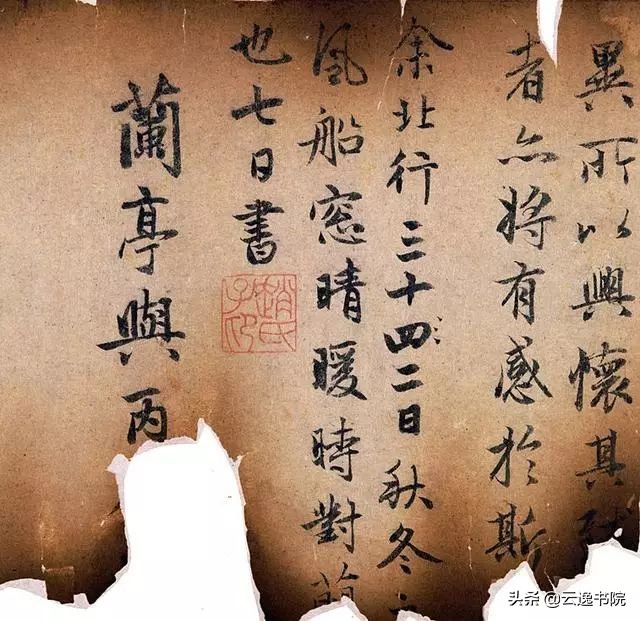 異所以興懷其致
者亦将有感於斯
余北行三十四二日秋冬
風船窓晴暖時對
也七日書
趙氏子印
蘭亭與丙
头条 @云逸书院